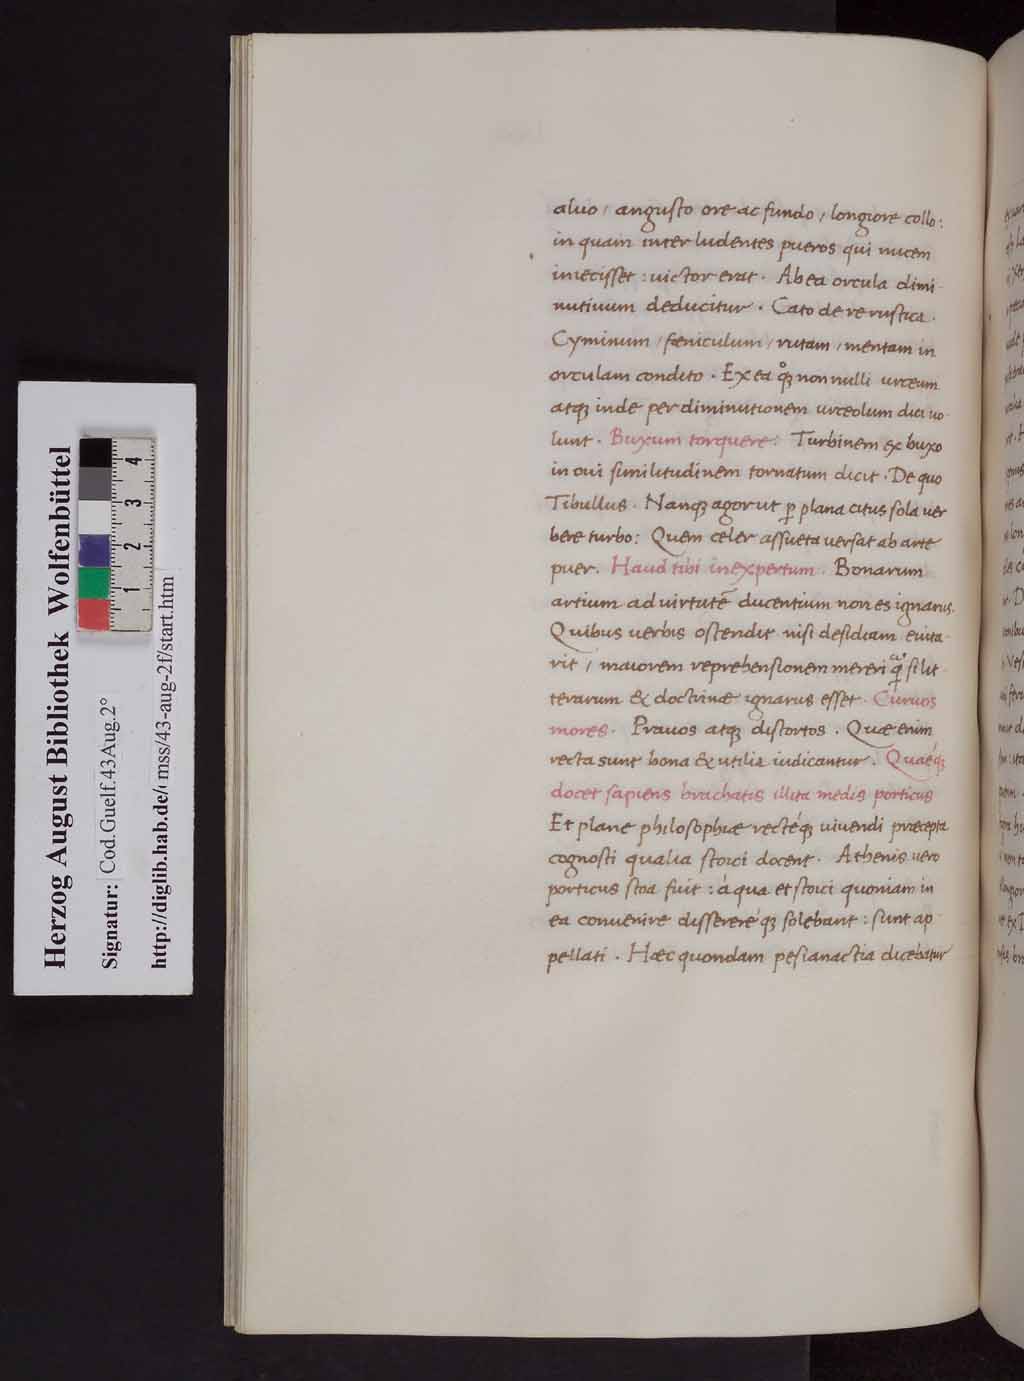 Herzog August Bibliothek Wolfenbüttel
Signatur: Cod.Guelf.43Aug.2°
http://diglib.hab.de/mss/43-aug-2f/start.htm
1 2 3 4
aluo / angusto ore ac fundo / longiore collo:
in quam inter ludentes pueros qui nucem
iniecisset : uictor erat . Ab ea orcula dimi
nutiuum deducitur . Cato de re rustica .
Cyminum / fœniculum / rutam / mentam in
orculam condito . Ex ea qͦꝫ nonnulli urceum
atqꝫ inde per diminutionem urceolum dici uo
lunt . Buxum torquere : Turbinem ex buxo
in oui similitudinem tornatum dicit . De quo
Tibullus . Nanqꝫ agor ut ꝑ plana citus sola uer
bere turbo : Quem celer assueta uersat ab arte
puer . Haud tibi inexpertum . Bonarum
artium ad uirtutē ducentium non es ignarus .
Quibus uerbis ostendit nisi desidiam euita
rit / maiorem reprehensionem mereri qᷓ si lit
terarum & doctrinæ ignarus esset . Curuos
mores . Prauos atqꝫ distortos . Quæ enim
recta sunt bona & utilia iudicantur . Quaéqꝫ
docet sapiens brachatis illita medis porticus
Et plane philosophiæ rectéqꝫ uiuendi præcepta
cognosti qualia stoici docent . Athenis uero
porticus stoa fuit : á qua et stoici quoniam in
ea conuenire disserereqꝫ solebant : sunt ap
pellati . Hæc quondam pesianactia dicebatur